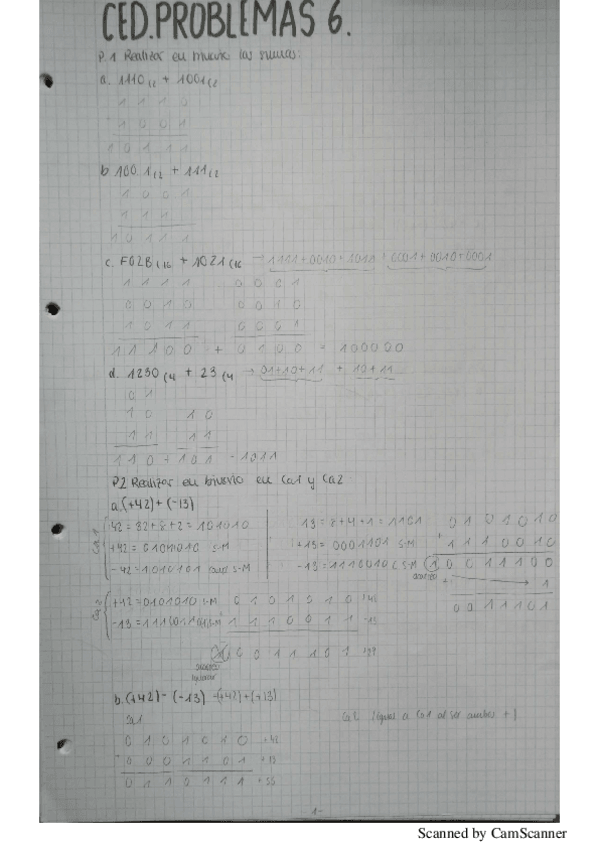 CED.PROBLEMAS 6.
P.1 Realizar en binario las sumas:
a. 1110(2 + 1001(2
1 1 1 0
1 0 0 1
1 0 1 1 1
b 1001(2 + 111(2
1 0 0 1
1 1 1
1 0 1 1 1
c. F02B(16 + 1021(16 → 1111+0010+1011 + 0001+0010+0001
1 1 1 1 0 0 0 1
0 0 1 0 0 0 1 0
1 0 1 1 0 0 0 1
1 1 1 0 0 + 0 1 0 0 = 100000
d. 1230(4 + 23(4 → 01+10+11 + 10+11
0 1
1 0 1 0
1 1 1 1
1 1 0 + 1 0 1 = 1011
P2 Realizar en binario en Ca1 y Ca2
a.(+42)+(-13)
42 = 32+8+2 = 101010 13 = 8+4+1 = 1101 0 1 0 1 0 1 0
+42 = 0101010 S-M +13 = 0001101 S-M + 1 1 1 0 0 1 0
-42 = 1010101 -13 = 1110010 1 0 0 1 1 1 0 0
1
+42 = 0101010 S-M 0 1 0 1 0 1 0 +42 0 0 1 1 1 0 1
-13 = 1110011 1 1 1 0 0 1 1 -13
0 0 1 1 1 0 1 +29
b.(+42)-(-13) = (+42)+(+13)
Ca1 Ca2 igual a Ca1 al ser ambos +)
0 1 0 1 0 1 0 +42
0 0 0 1 1 0 1 +13
0 1 1 0 1 1 1 +55
1-
Scanned by CamScanner